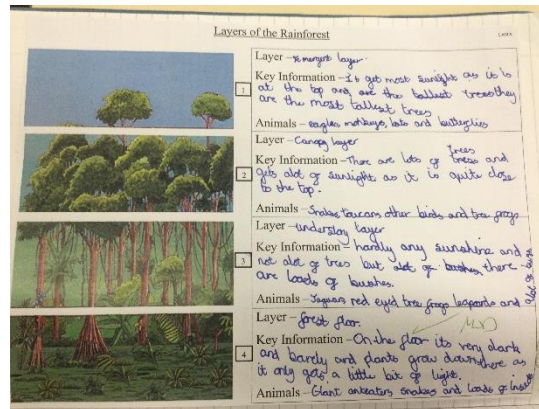 Layers of the Rainforest
Layer - emergent layer
Key Information - Is get most sunlight as it is
at the top and are the tallest trees they
are the most tallest trees
Animals - eagles monkeys, bats and butterflies
1
Layer - Canopy layer
trees
Key Information - There are lots of trees and
gets alot of sunlight as it is quite close
to the top.
Animals - Snakes Toucans other birds and tree frogs
2
Layer - understory layer
Key Information - hardly any sunshine and
not alot of trees but alot of bushes, there
are loads of bushes.
Animals - Jaguars red eyed tree frogs leopards and
3
Layer - forest floor.
Key Information - On the floor its very dark
and barely and plants grow down there as
it only gets a little bit of light.
Animals - Giant anteaters snakes and loads of insects
4